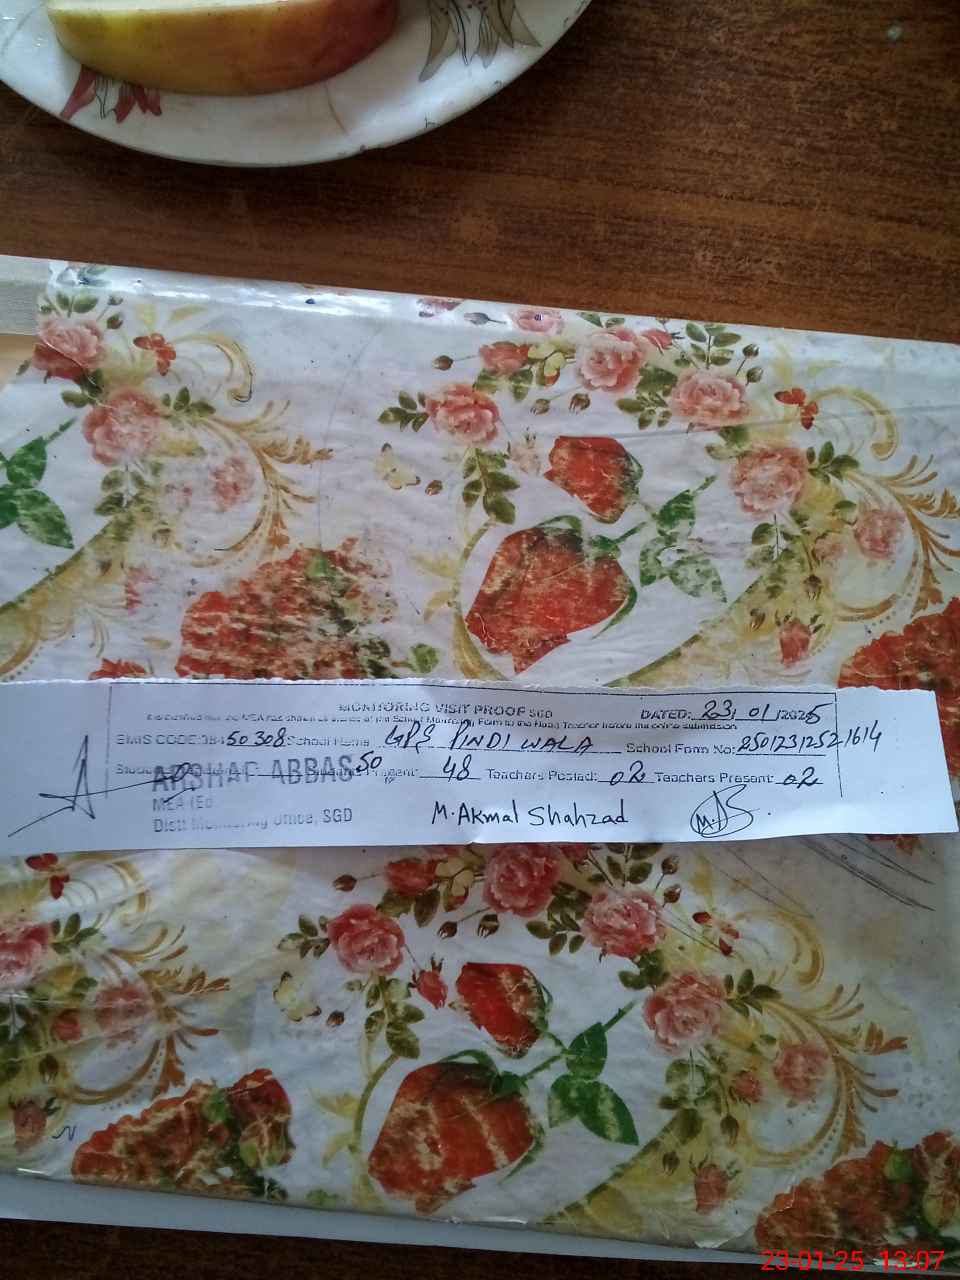 MONITORING VISIT PROOF SGD DATED: 23/01/2025
It is certified that the MEA has shown all entries of the School Monitoring Form to the Head Teacher before the online submission
EMIS CODE:384 50308 School Name GPS PINDI WALA School Form No: 25012312521614
50 Present: 48 Teachers Posted: 02 Teachers Present: 02
ARSHAF ABBAS
MEA (Ed
Distt Monitoring Office, SGD
M. Akmal Shahzad
23-01-25 13:07